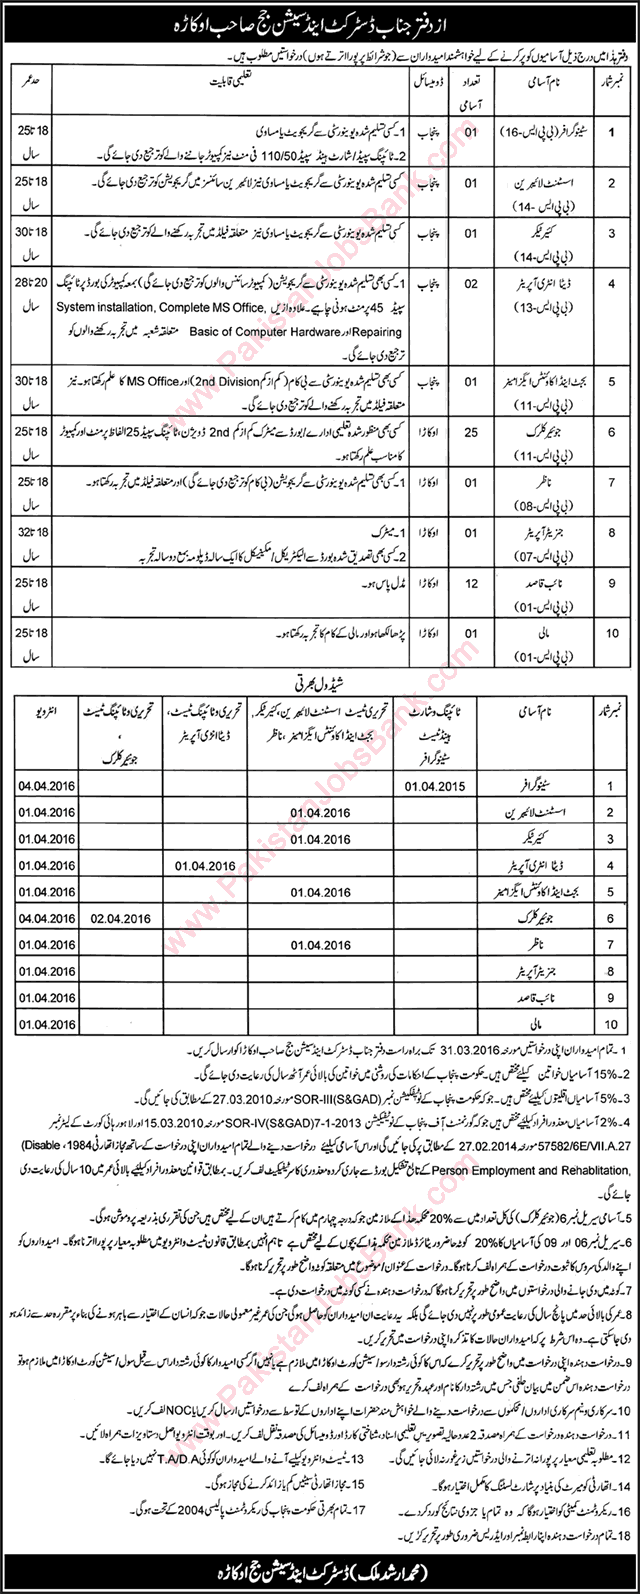 از دفتر جناب ڈسٹرکٹ اینڈ سیشن جج صاحب اوکاڑہ
دفتر ہذا میں درج ذیل آسامیوں کو پر کرنے کے لیے خواہشمند امیدواران سے (جو شرائط پر پورا اترتے ہوں) درخواستیں مطلوب ہیں۔
نمبر شمار نام آسامی تعداد آسامی ڈومیسائل تعلیمی قابلیت حد عمر
1 سٹینو گرافر (بی پی ایس-16) 01 پنجاب 1۔ کسی تسلیم شدہ یونیورسٹی سے گریجویٹ یا مساوی 18 تا 25 سال
2۔ ٹائپنگ سپیڈ / شارٹ ہینڈ سپیڈ 110/50 فی منٹ نیز کمپیوٹر جاننے والے کو ترجیح دی جائے گی۔
2 اسسٹنٹ لائبریرین (بی پی ایس-14) 01 پنجاب کسی تسلیم شدہ یونیورسٹی سے گریجویٹ یا مساوی نیز لائبریرین سائنسز میں گریجویشن کو ترجیح دی جائے گی۔ 18 تا 25 سال
3 کئیر ٹیکر (بی پی ایس-14) 01 پنجاب کسی تسلیم شدہ یونیورسٹی سے گریجویٹ یا مساوی نیز متعلقہ فیلڈ میں تجربہ رکھنے والے کو ترجیح دی جائے گی۔ 18 تا 30 سال
4 ڈیٹا انٹری آپریٹر (بی پی ایس-13) 02 پنجاب 1۔ کسی بھی تسلیم شدہ یونیورسٹی سے گریجویشن (کمپیوٹر سائنس والوں کو ترجیح دی جائے گی) بمعہ کمپیوٹر کی بورڈ پر ٹائپنگ 20 تا 28 سال
سپیڈ 45 پر منٹ ہونی چاہیے۔ علاوہ ازیں System installation, Complete MS Office,
Basic of Computer Hardware اور Repairing متعلقہ شعبہ میں تجربہ رکھنے والوں کو
ترجیح دی جائے گی۔
5 بجٹ اینڈ اکاؤنٹس ایگزامینر (بی پی ایس-11) 01 پنجاب کسی بھی تسلیم شدہ یونیورسٹی سے بی کام (کم از کم 2nd Division) اور MS Office کا علم رکھتا ہو۔ نیز 18 تا 30 سال
متعلقہ فیلڈ میں تجربہ رکھنے والے کو ترجیح دی جائے گی۔
6 جونیئر کلرک (بی پی ایس-11) 25 اوکاڑا کسی بھی منظور شدہ تعلیمی ادارے / بورڈ سے میٹرک کم از کم 2nd ڈویژن، ٹائپنگ سپیڈ 25 الفاظ پر منٹ اور کمپیوٹر 18 تا 25 سال
کا مناسب علم رکھتا ہو۔
7 ناظر (بی پی ایس-08) 01 اوکاڑا 1۔ کسی بھی تسلیم شدہ یونیورسٹی سے گریجویشن (بی کام کو ترجیح دی جائے گی) اور متعلقہ فیلڈ میں تجربہ رکھتا ہو۔ 18 تا 25 سال
8 جنریٹر آپریٹر (بی پی ایس-07) 01 اوکاڑا 1۔ میٹرک 18 تا 32 سال
2۔ کسی بھی تصدیق شدہ بورڈ سے الیکٹریکل / مکینیکل کا ایک سالہ ڈپلومہ بمع دو سالہ تجربہ
9 نائب قاصد (بی پی ایس-01) 12 اوکاڑا مڈل پاس ہو۔ 18 تا 25 سال
10 مالی (بی پی ایس-01) 01 اوکاڑا پڑھا لکھا ہو اور مالی کے کام کا تجربہ رکھتا ہو۔ 18 تا 25 سال
شیڈول بھرتی
نمبر شمار نام آسامی ٹائپنگ و شارٹ ہینڈ ٹیسٹ سٹینو گرافر تحریری ٹیسٹ اسسٹنٹ لائبریرین، کئیر ٹیکر، بجٹ اینڈ اکاؤنٹس ایگزامینر، ناظر تحریری و ٹائپنگ ٹیسٹ، ڈیٹا انٹری آپریٹر تحریری و ٹائپنگ ٹیسٹ، جونیئر کلرک انٹرویو
1 سٹینو گرافر 01.04.2015 04.04.2016
2 اسسٹنٹ لائبریرین 01.04.2016 01.04.2016
3 کئیر ٹیکر 01.04.2016 01.04.2016
4 ڈیٹا انٹری آپریٹر 01.04.2016 01.04.2016
5 بجٹ اینڈ اکاؤنٹس ایگزامینر 01.04.2016 01.04.2016
6 جونیئر کلرک 02.04.2016 04.04.2016
7 ناظر 01.04.2016 01.04.2016
8 جنریٹر آپریٹر 01.04.2016
9 نائب قاصد 01.04.2016
10 مالی 01.04.2016
1۔ تمام امیدواران اپنی درخواستیں مورخہ 31.03.2016 تک براہ راست دفتر جناب ڈسٹرکٹ اینڈ سیشن جج صاحب اوکاڑا کو ارسال کریں۔
2۔ 15% آسامیاں خواتین کیلئے مختص ہیں۔ حکومت پنجاب کے احکامات کی روشنی میں خواتین کی بالائی عمر آٹھ سال کی رعایت دی جائے گی۔
3۔ 5% آسامیاں اقلیتوں کیلئے مختص ہیں۔ جو کہ حکومت پنجاب کے نوٹیفکیشن نمبر SOR-III(S&GAD) مورخہ 27.03.2010 کے مطابق کی جائیں گی۔
4۔ 2% آسامیاں معذور افراد کیلئے مختص ہیں جو کہ گورنمنٹ آف پنجاب کے نوٹیفکیشن SOR-IV(S&GAD)7-1-2013 مورخہ 15.03.2010 اور لاہور ہائی کورٹ کے لیٹر نمبر
57582/6E/VII.A.27 مورخہ 27.02.2014 کے مطابق پر کی جائیں گی اور اس آسامی کیلئے درخواست دینے والے تمام امیدواران اپنی درخواست کے ساتھ مجاز اتھارٹی 1984، (Disable
Person Employment and Rehablitation, کے تابع تشکیل بورڈ سے جاری کردہ معذوری کا سرٹیفکیٹ لف کریں۔ بمطابق قوانین معذور افراد کیلئے بالائی عمر میں 10 سال کی رعایت دی
جائے گی۔
5۔ آسامی سیریل نمبر 6 (جونیئر کلرک) کی کل تعداد میں سے 20% محکمہ ہذا کے ملازمین جو کہ درجہ چہارم میں کام کرتے ہیں ان کے لیے مختص ہیں جن کی تقرری بذریعہ پروموشن ہوگی۔
6۔ سیریل نمبر 06 اور 09 کی آسامیاں کا 20% کوٹہ حاضر و ریٹائرڈ ملازمین محکمہ ہذا کے بچوں کے لیے مختص ہے تاہم انہیں بمطابق قانون ٹیسٹ و انٹرویو میں مطلوبہ معیار پر پورا اترنا ہوگا۔ امیدواروں کو
اپنے والد کی سروس کا ثبوت درخواست کے ہمراہ لف کرنا ہوگا۔ درخواست کے عنوان / موضوع میں متعلقہ کوٹہ واضح طور پر تحریر کرنا ہوگا۔
7۔ کوٹہ میں دی جانے والی درخواستوں میں واضح طور پر تحریر کرنا ہوگا کہ درخواست دہندہ نے کسی کوٹہ میں درخواست دی ہے۔
8۔ عمر کی بالائی حد میں پانچ سال کی رعایت عمومی طور پر نہیں دی جائے گی بلکہ یہ رعایت ان امیدواران کو حاصل ہوگی جن کی عمر غیر معمولی حالات جو کہ انسان کے اختیار سے باہر ہونے کی بناء پر مقررہ حد سے زائد ہو
دی جا سکتی ہے۔ وہ اس شرط پر کہ امیدواران حالات کا تذکرہ اپنی درخواست میں تحریر کریں۔
9۔ درخواست دہندہ اپنی درخواست میں واضح طور پر تحریر کرے کہ اس کا کوئی رشتہ دار سول / سیشن کورٹ اوکاڑا میں ملازم ہے یا نہیں اگر کسی امیدوار کا کوئی رشتہ دار اس سے قبل سول / سیشن کورٹ اوکاڑا میں ملازم ہو تو
درخواست دہندہ اس ضمن میں بیان حلفی جس میں رشتہ دار کا نام اور عہدہ تحریر ہو بھی درخواست کے ہمراہ لف کرے
10۔ سرکاری و نیم سرکاری اداروں / محکموں سے درخواست دینے والے خواہش مند حضرات اپنے اداروں کے توسط سے درخواستیں ارسال کریں یا NOC لف کریں۔
11۔ درخواست دہندہ درخواست کے ہمراہ مصدقہ 2 عدد حالیہ تصویریں، تعلیمی اسناد، شناختی کارڈ اور ڈومیسائل کی مصدقہ نقل لف کریں۔ اور بوقت انٹرویو اصل دستاویزات ہمراہ لائیں۔
12۔ مطلوبہ تعلیمی معیار پر پورا نہ اترنے والی درخواستیں زیر غور نہ لائی جائیں گی۔ 13۔ ٹیسٹ و انٹرویو کیلئے آنے والے امیدواران کو کوئی T.A/D.A نہیں دیا جائے گا۔
14۔ اتھارٹی کو میرٹ کی بنیاد پر شارٹ لسٹنگ کا مکمل اختیار ہوگا۔ 15۔ مجاز اتھارٹی سیٹیں کم یا زائد کرنے کی مجاز ہوگی۔
16۔ ریکروٹمنٹ کمیٹی کو اختیار ہوگا کہ وہ تمام یا جزوی نتائج کو رد کر دے۔ 17۔ تمام بھرتی حکومت پنجاب کی ریکروٹمنٹ پالیسی 2004 کے تحت ہوگی۔
18۔ تمام درخواست دہندہ اپنا رابطہ نمبر اور ایڈریس ضروری طور پر تحریر کریں۔
(محمد ارشد ملک) ڈسٹرکٹ اینڈ سیشن جج اوکاڑہ
www.PakistanJobsBank.com
www.PakistanJobsBank.com
www.PakistanJobsBank.com